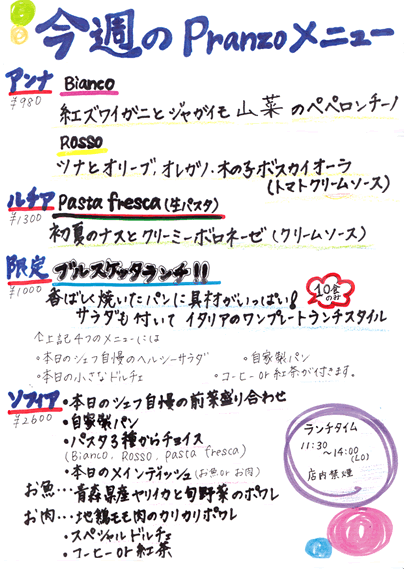 今週のPranzoメニュー
アンナ Bianco
¥980
紅ズワイガニとジャガイモ 山菜 のペペロンチーノ
Rosso
ツナとオリーブ、オレガノ、木の子ボスカイオーラ
(トマトクリームソース)
ルチア Pasta fresca(生パスタ)
¥1300
初夏のナスとクリーミーボロネーゼ(クリームソース)
限定 ブルスケッタランチ!!
¥1000
香ばしく焼いたパンに具材がいっぱい!
10食のみ
サラダも付いて イタリアのワンプレートランチスタイル
↑上記4つのメニューには
・本日のシェフ自慢のヘルシーサラダ ・自家製パン
・本日の小さなドルチェ ・コーヒーor紅茶が付きます。
ソフィア ・本日のシェフ自慢の前菜盛り合わせ
¥2600
・自家製パン
・パスタ3種からチョイス
(Bianco、Rosso、pasta fresca)
・本日のメインディッシュ(お魚orお肉)
お魚…青森県産ヤリイカと旬野菜のポワレ
お肉…地鶏モモ肉のカリカリポワレ
・スペシャルドルチェ
・コーヒーor紅茶
ランチタイム
11:30
~14:00
(LO)
店内禁煙